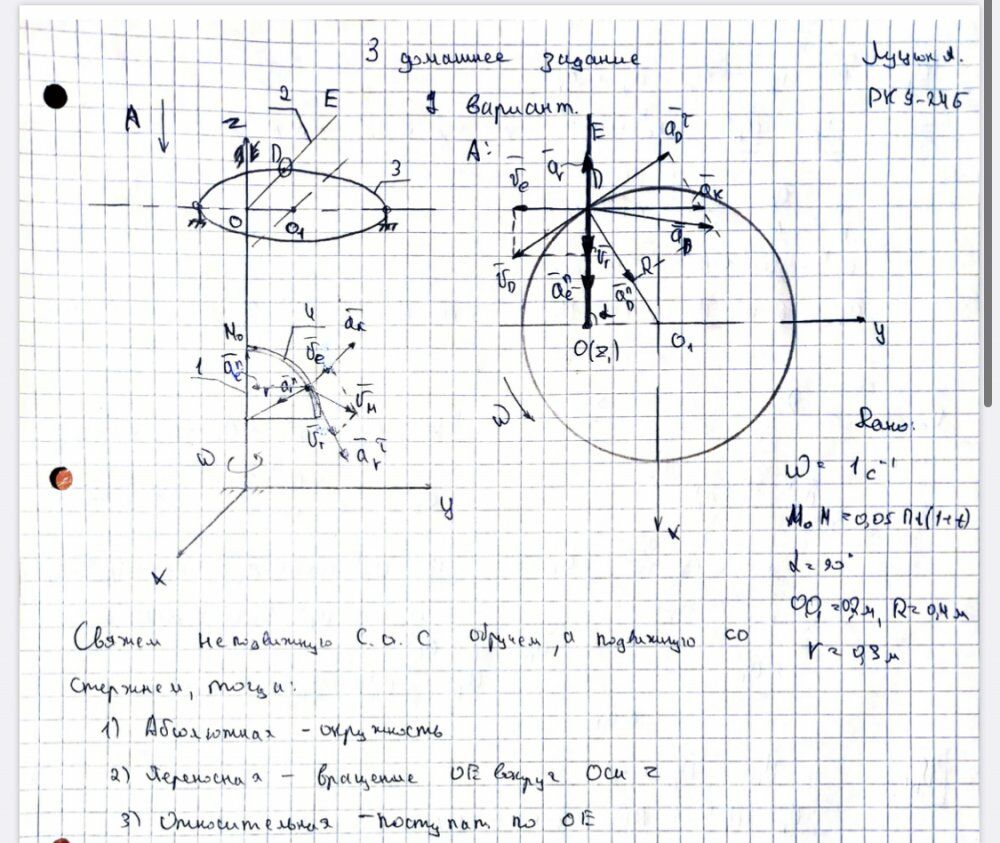 3 домашнее задание
Луцюк А.
РК 9-24Б
1 вариант.
A
2
E
z
D
3
O
O₁
A:
E
a̅_D^τ
v̅_e
a̅_r
D
a̅_K
a̅_D
v̅_D
v̅_r
R
a̅_e^n
a̅_D^n
α
O(z₁)
O₁
y
ω
x
M₀
4
a̅_K
v̅_e
1
a̅_e^n
r
a̅_r^n
v̅_M
v̅_r
a̅_r^τ
ω
y
x
Дано:
ω = 1 c⁻¹
M₀M = 0,05 πt(1+t)
α = 90°
OO₁ = 0,2 м, R = 0,4 м
r = 0,3 м
Свяжем неподвижную С.О. с обручем, а подвижную со
стержнем, тогда:
1) Абсолютная - окружность
2) Переносная - вращение OE вокруг оси z
3) Относительная - поступат. по OE